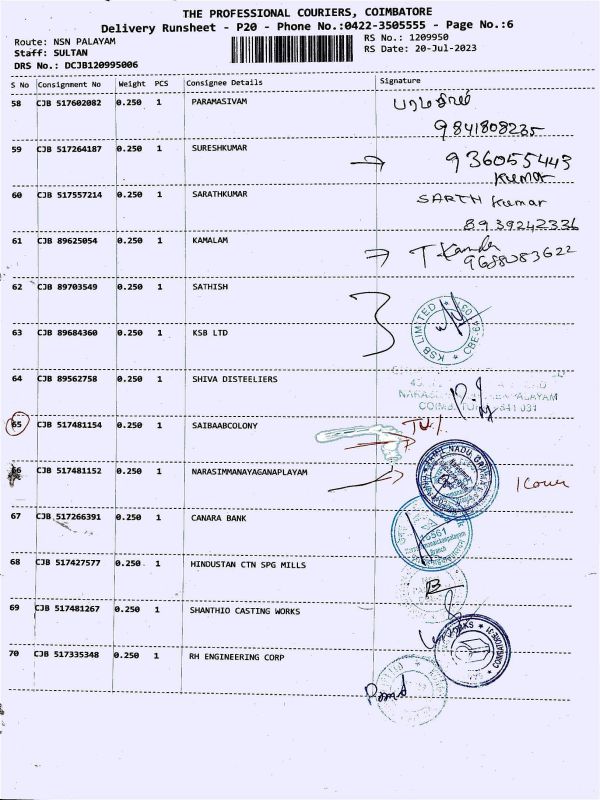 THE PROFESSIONAL COURIERS, COIMBATORE
Delivery Runsheet - P20 - Phone No.:0422-3505555 - Page No.:6
Route: NSN PALAYAM
RS No.: 1209950
Staff: SULTAN
RS Date: 20-Jul-2023
DRS No.: DCJB120995006
S No Consignment No Weight PCS Consignee Details Signature
58 CJB 517602082 0.250 1 PARAMASIVAM
9841808235
59 CJB 517264187 0.250 1 SURESHKUMAR 936055443
Kumar
60 CJB 517557214 0.250 1 SARATHKUMAR SARTH Kumar
8939242336
61 CJB 89625054 0.250 1 KAMALAM
9688083622
62 CJB 89703549 0.250 1 SATHISH
63 CJB 89684360 0.250 1 KSB LTD KSB LIMITED
64 CJB 89562758 0.250 1 SHIVA DISTEELIERS
65 CJB 517481154 0.250 1 SAIBAABCOLONY
66 CJB 517481152 0.250 1 NARASIMMANAYAGANAPLAYAM
67 CJB 517266391 0.250 1 CANARA BANK
68 CJB 517427577 0.250 1 HINDUSTAN CTN SPG MILLS
69 CJB 517481267 0.250 1 SHANTHIO CASTING WORKS
70 CJB 517335348 0.250 1 RH ENGINEERING CORP